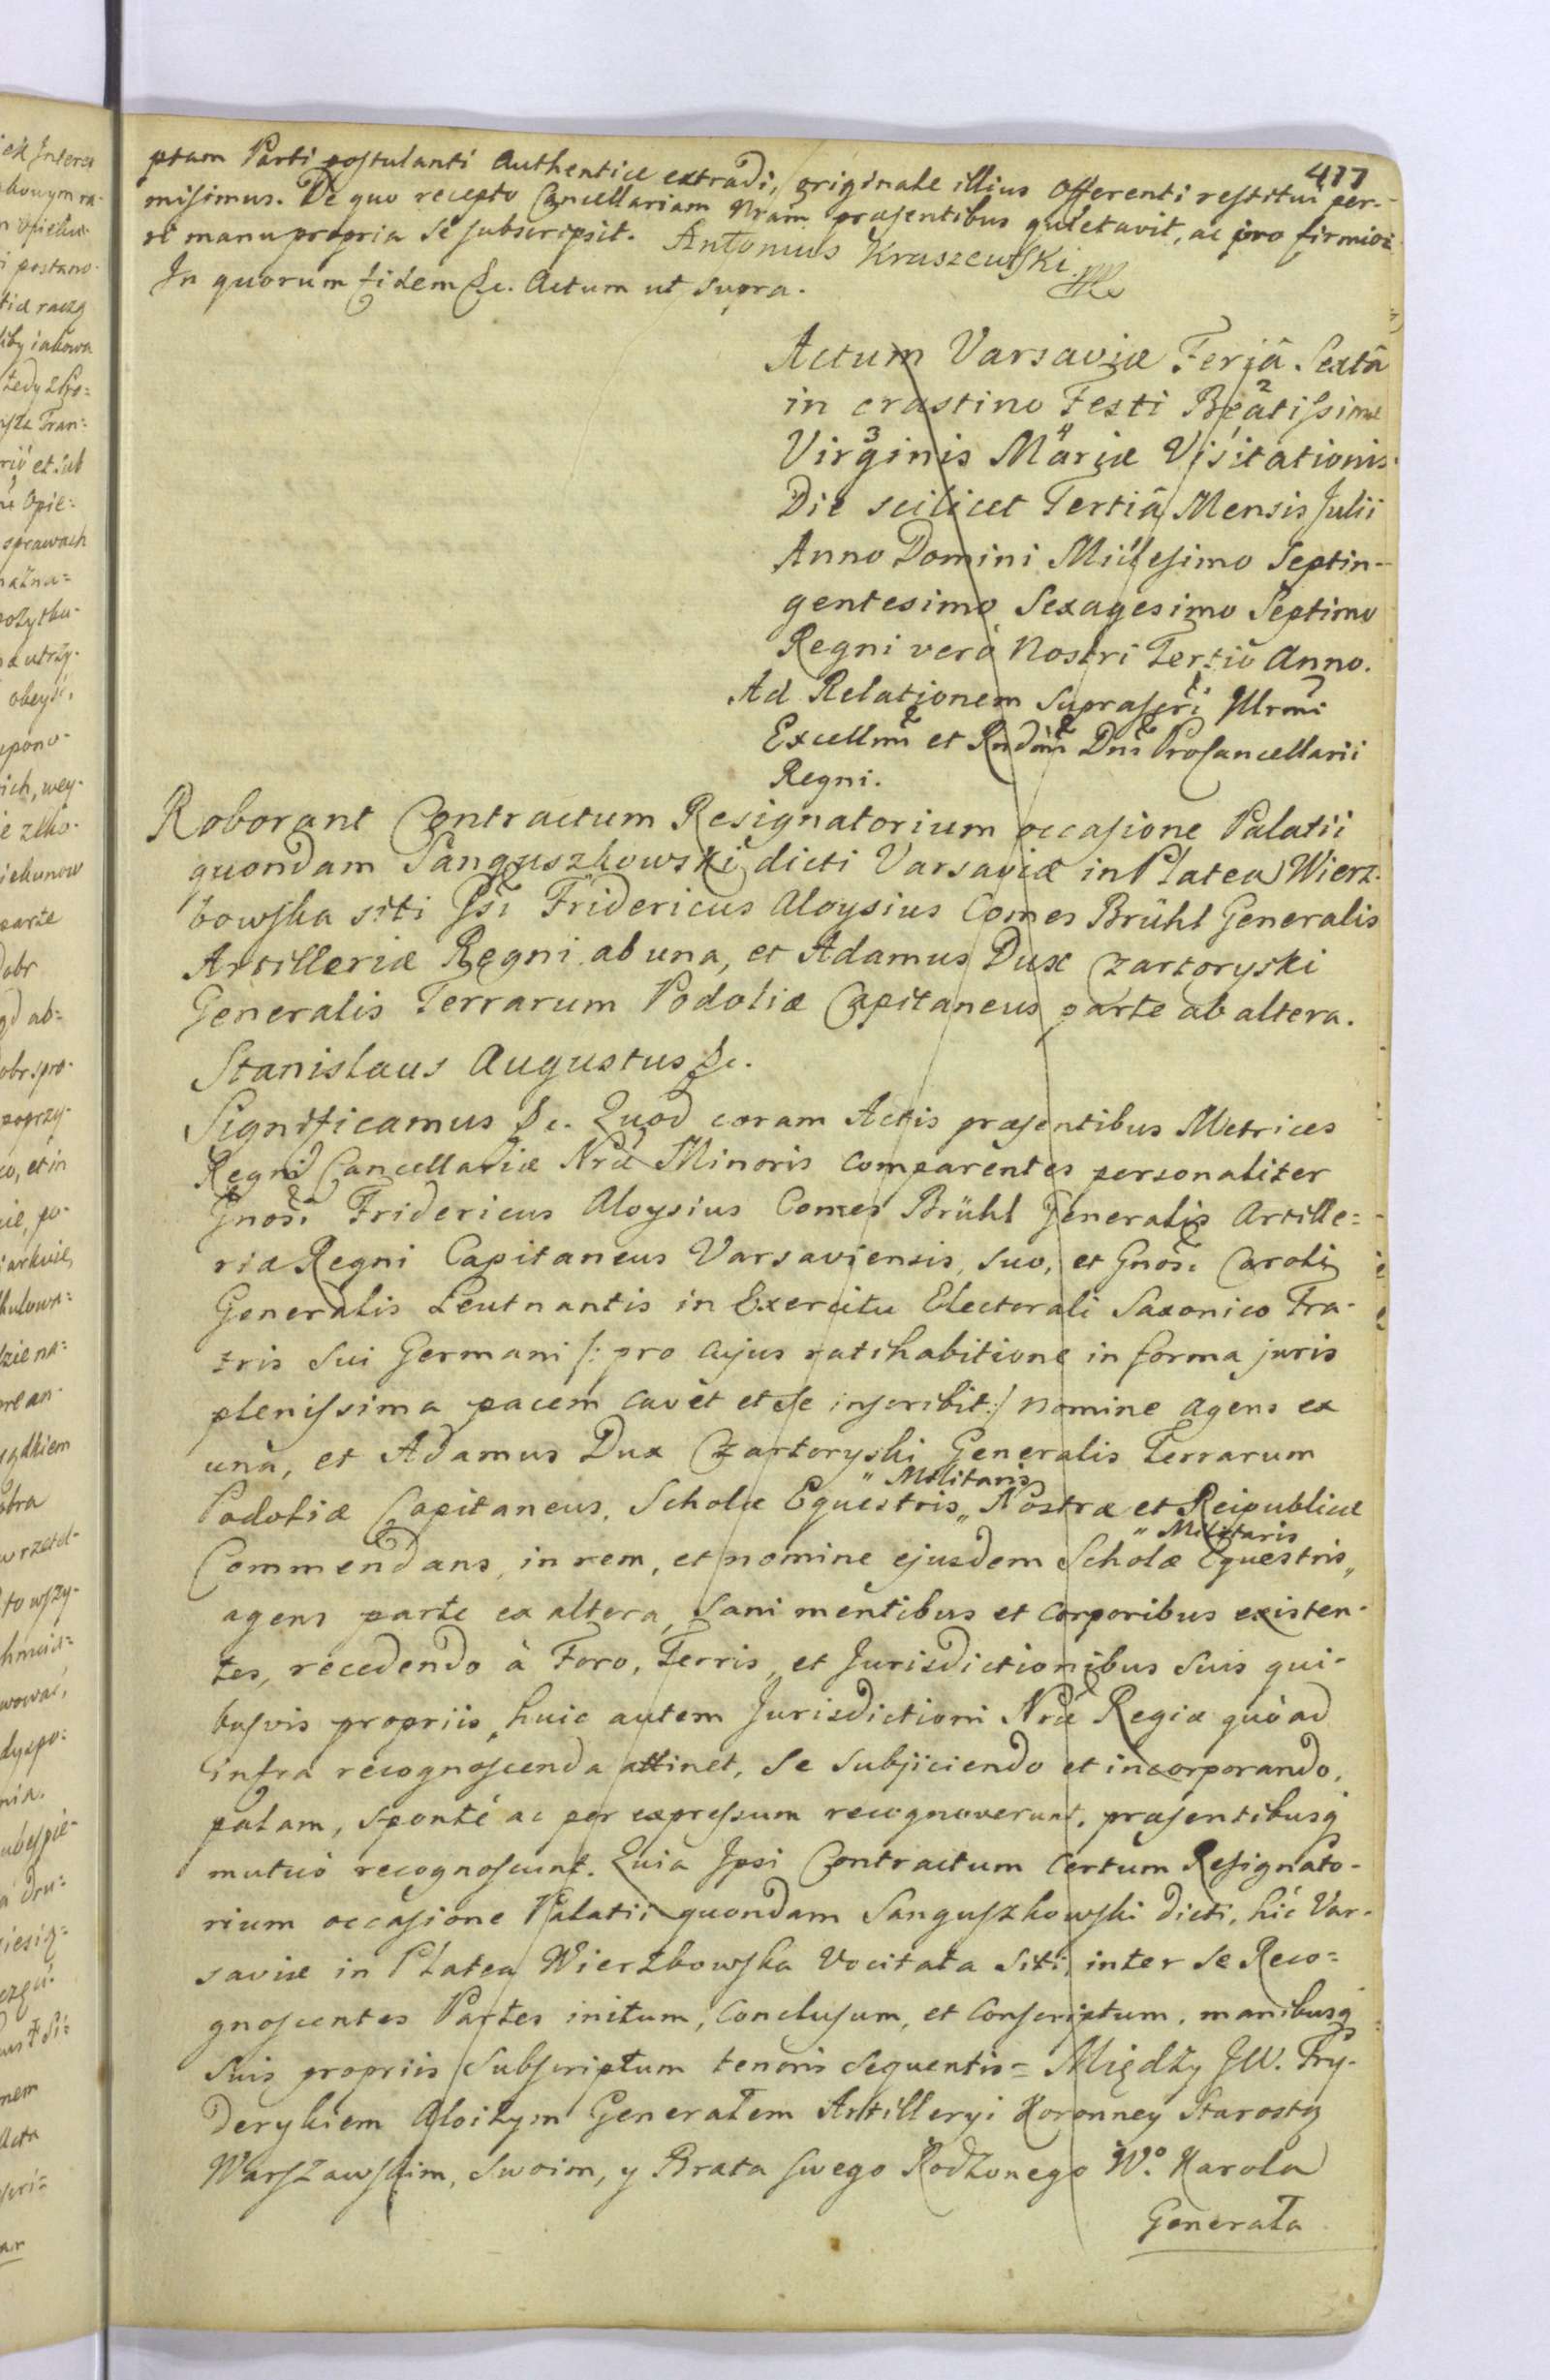 417
ptam Parti postulanti Authenticè extradi, originale illius Offerenti restitui per-
misimus. De quo recepto Cancellariam Nram præsentibus quietavit, ac pro firmiori
manu propria se subscripsit. Antonius Kraszewski
In quorum fidem &c. Actum ut supra.
Actum Varsaviæ Feriâ Sextâ
in crastino Festi Beatissimæ
Virginis Mariæ Visitationis
Die scilicet Tertiâ Mensis Julii
Anno Domini Millesimo Septin-
gentesimo Sexagesimo Septimo
Regni verò Nostri Tertio Anno.
Ad Relationem suprascri Illrmi
Excellmi et Rndmi Dni ProCancellarii
Regni.
Roborant Contractum Resignatorium occasione Palatii
quondam Sanguszkowski dicti Varsaviæ in Platea Wierz-
bowska siti Gsi Fridericus Aloysius Comes Brühl Generalis
Artilleriæ Regni ab una, et Adamus Dux Czartoryski
Generalis Terrarum Podoliæ Capitaneus parte ab altera.
Stanislaus Augustus &c.
Significamus &c. Quod coram Actis præsentibus Metrices
Regni Cancellariæ Nræ Minoris comparentes personaliter
Gnosi Fridericus Aloysius Comes Brühl Generalis Artille=
riæ Regni Capitaneus Varsaviensis, suo, et Gnosi Caroli
Generalis Leutnantis in Exercitu Electorali Saxonico Fra-
tris sui Germani /: pro cujus ratihabitione in forma juris
plenissima pacem cavet et se inscribit :/ nomine agens ex
unâ, et Adamus Dux Czartoryski Generalis Terrarum
Podoliæ Capitaneus, Scholæ Equestris „ Militaris „ Nostræ et Reipublicæ
Commendans, in rem, et nomine ejusdem Scholæ Equestris „ Militaris „
agens parte ex altera, sani mentibus et corporibus existen-
tes, recedendo à Foro, Terris, et Jurisdictionibus suis qui-
busvis propriis, huic autem Jurisdictioni Nræ Regiæ quò ad
infra recognoscenda attinet, se subjiciendo et incorporando,
palam, spontè ac per expressum recognoverunt, præsentibusq
mutuò recognoscunt. Quia Ipsi Contractum certum Resignato-
rium occasione Palatii quondam Sanguszkowski dicti, hic Var-
saviæ in Platea Wierzbowska vocitata siti, inter se Reco=
gnoscentes Partes initum, conclusum, et conscriptum, manibusq
suis propriis subscriptum tenoris sequentis = Między JW. Fry-
derykiem Aloizym Generałem Artilleryi Koronney Starostą
Warszawskim, swoim, y Brata swego Rodzonego Wo. Karola
Generała